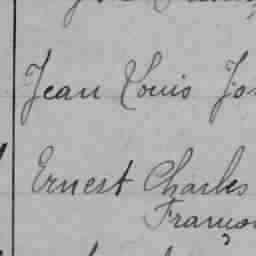 Jean Louis Jos
Ernest Charles
François